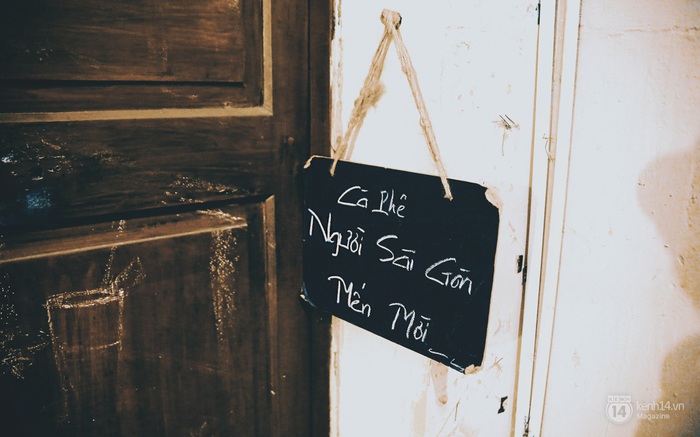 Cà Phê
Người Sài Gòn
Mến Mời
KENH
14
kenh14.vn
Magazine